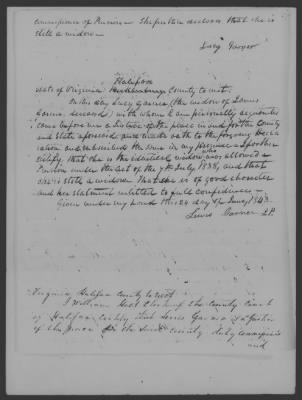 commissioner of Pensions. She further declares that she is
still a widow.
Lucy Garner
Halifax
State of Virginia County to wit
On this day Lucy Garner (the widow of
Garner, deceased) with whom I am personally acquainted
came before me a Justice of the peace in and for the County
and State aforesaid and made oath to the foregoing Decla
ration and subscribed the same in my presence & I further
certify, that she is the identical widow who was allowed a
Pension under the act of the 7th July 1838, and that
she is still a widow. That she is of good character
and her statement entitled to full confidence.
Given under my hand this 24 day of 1843
J.P.
Virginia Halifax County to wit
I William Holt Clerk of the County Court
of Halifax County that Lewis is a Justice
of the peace for the said County duly commissioned
and